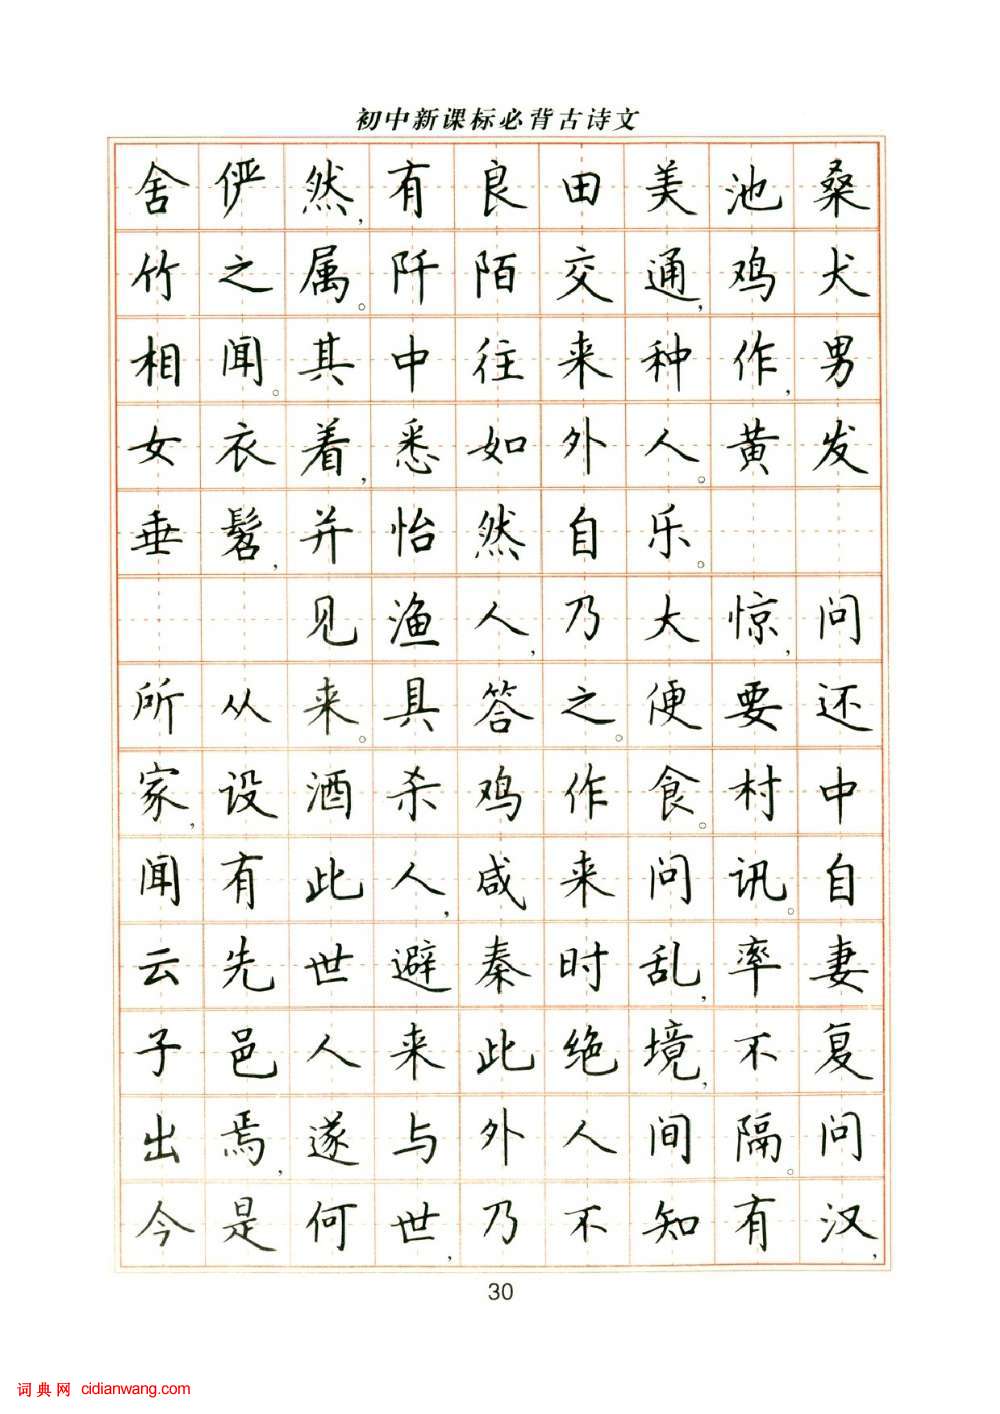 初中新课标必背古诗文
舍俨然,有良田美池桑
竹之属。阡陌交通,鸡犬
相闻。其中往来种作,男
女衣着,悉如外人。黄发
垂髫,并怡然自乐。
见渔人,乃大惊,问
所从来。具答之。便要还
家,设酒杀鸡作食。村中
闻有此人,咸来问讯。自
云先世避秦时乱,率妻
子邑人来此绝境,不复
出焉,遂与外人间隔。问
今是何世,乃不知有汉,
30
词典网 cidianwang.com